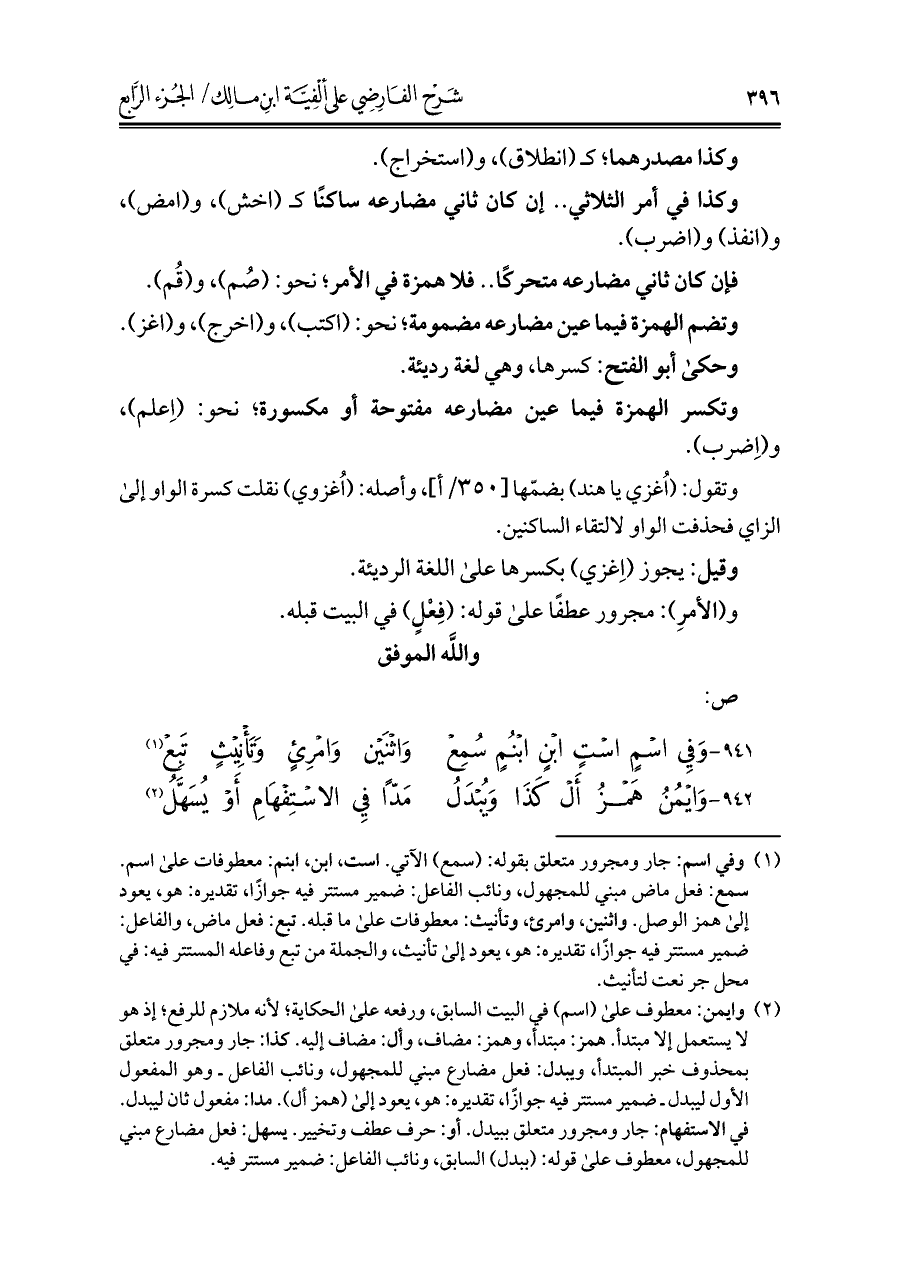 ٣٩٦ شَرْح الفَارِضِي عَلَى أَلْفِيَّة ابْنِ مَالِك/ الجُزء الرَّابع
وكذا مصدرهما؛ كـ (انطلاق)، و(استخراج).
وكذا في أمر الثلاثي.. إن كان ثاني مضارعه ساكنًا كـ (اخش)، و(امض)،
و(انفذ) و(اضرب).
فإن كان ثاني مضارعه متحركًا.. فلا همزة في الأمر؛ نحو: (صُم)، و(قُم).
وتضم الهمزة فيما عين مضارعه مضمومة؛ نحو: (اكتب)، و(اخرج)، و(اغز).
وحكىٰ أبو الفتح: كسرها، وهي لغة رديئة.
وتكسر الهمزة فيما عين مضارعه مفتوحة أو مكسورة؛ نحو: (اِعلم)،
و(اِضرب).
وتقول: (اُغزي يا هند) بضمّها [٣٥٠/ أ]، وأصله: (اُغزوي) نقلت كسرة الواو إلىٰ
الزاي فحذفت الواو لالتقاء الساكنين.
وقيل: يجوز (اِغزي) بكسرها علىٰ اللغة الرديئة.
و(الأمرِ): مجرور عطفًا علىٰ قوله: (فِعْلٍ) في البيت قبله.
واللَّه الموفق
ص:
٩٤١-وَفِي اسْمٍ اسْتٍ ابْنٍ ابْنُمٍ سُمِعْ وَاثْنَيْنِ وَامْرِئٍ وَتَأْنِيْثٍ تَبِعْ(١)
٩٤٢-وَايْمُنُ هَمْزُ أَلْ كَذَا وَيُبْدَلُ مَدًّا فِي الاسْتِفْهَامِ أَوْ يُسَهَّلُ(٢)
(١) وفي اسم: جار ومجرور متعلق بقوله: (سمع) الآتي. است، ابن، ابنم: معطوفات علىٰ اسم.
سمع: فعل ماض مبني للمجهول، ونائب الفاعل: ضمير مستتر فيه جوازًا، تقديره: هو، يعود
إلىٰ همز الوصل. واثنين، وامرئ، وتأنيث: معطوفات علىٰ ما قبله. تبع: فعل ماض، والفاعل:
ضمير مستتر فيه جوازًا، تقديره: هو، يعود إلىٰ تأنيث، والجملة من تبع وفاعله المستتر فيه: في
محل جر نعت لتأنيث.
(٢) وايمن: معطوف علىٰ (اسم) في البيت السابق، ورفعه علىٰ الحكاية؛ لأنه ملازم للرفع؛ إذ هو
لا يستعمل إلا مبتدأ. همز: مبتدأ، وهمز: مضاف، وأل: مضاف إليه. كذا: جار ومجرور متعلق
بمحذوف خبر المبتدأ، ويبدل: فعل مضارع مبني للمجهول، ونائب الفاعل ـ وهو المفعول
الأول ليبدل ـ ضمير مستتر فيه جوازًا، تقديره: هو، يعود إلىٰ (همز أل). مدا: مفعول ثان ليبدل.
في الاستفهام: جار ومجرور متعلق بيبدل. أو: حرف عطف وتخيير. يسهل: فعل مضارع مبني
للمجهول، معطوف علىٰ قوله: (يبدل) السابق، ونائب الفاعل: ضمير مستتر فيه.